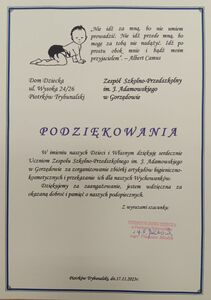 „Nie idź za mną, bo nie umiem
prowadzić. Nie idź przede mną, bo
mogę za tobą nie nadążyć. Idź po
prostu obok mnie i bądź moim
przyjacielem". – Albert Camus
Dom Dziecka
ul. Wysoka 24/26
Piotrków Trybunalski
Zespół Szkolno-Przedszkolny
im. J. Adamowskiego
w Gorzędowie
PODZIĘKOWANIA
W imieniu naszych Dzieci i Własnym dziękuję serdecznie
Uczniom Zespołu Szkolno-Przedszkolnego im. J. Adamowskiego
w Gorzędowie za zorganizowanie zbiórki artykułów higieniczno-
kosmetycznych i przekazanie ich dla naszych Wychowanków.
Dziękujemy za zaangażowanie, jestem wdzięczna za
okazaną dobroć i pamięć o naszych podopiecznych.
Z wyrazami szacunku:
Piotrków Trybunalski, dn.17.11.2023r.